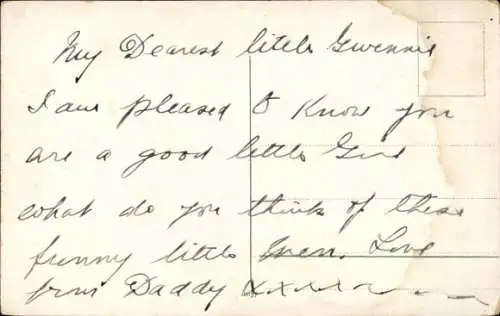 My Dearest little Gwennie
I am pleased to know you
are a good little Girl
what do you think of these
funny little men. Love
from Daddy xxxx